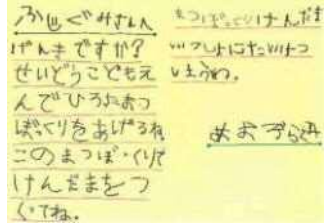 ふじぐみさんへ
げんきですか?
せいどうこどもえ
んでひろったまつ
ぼっくりをあげるね
このまつぼっくりで
けんだまをつ
くってね。
まつぼっくりけんだま
いっしょに
しようね。